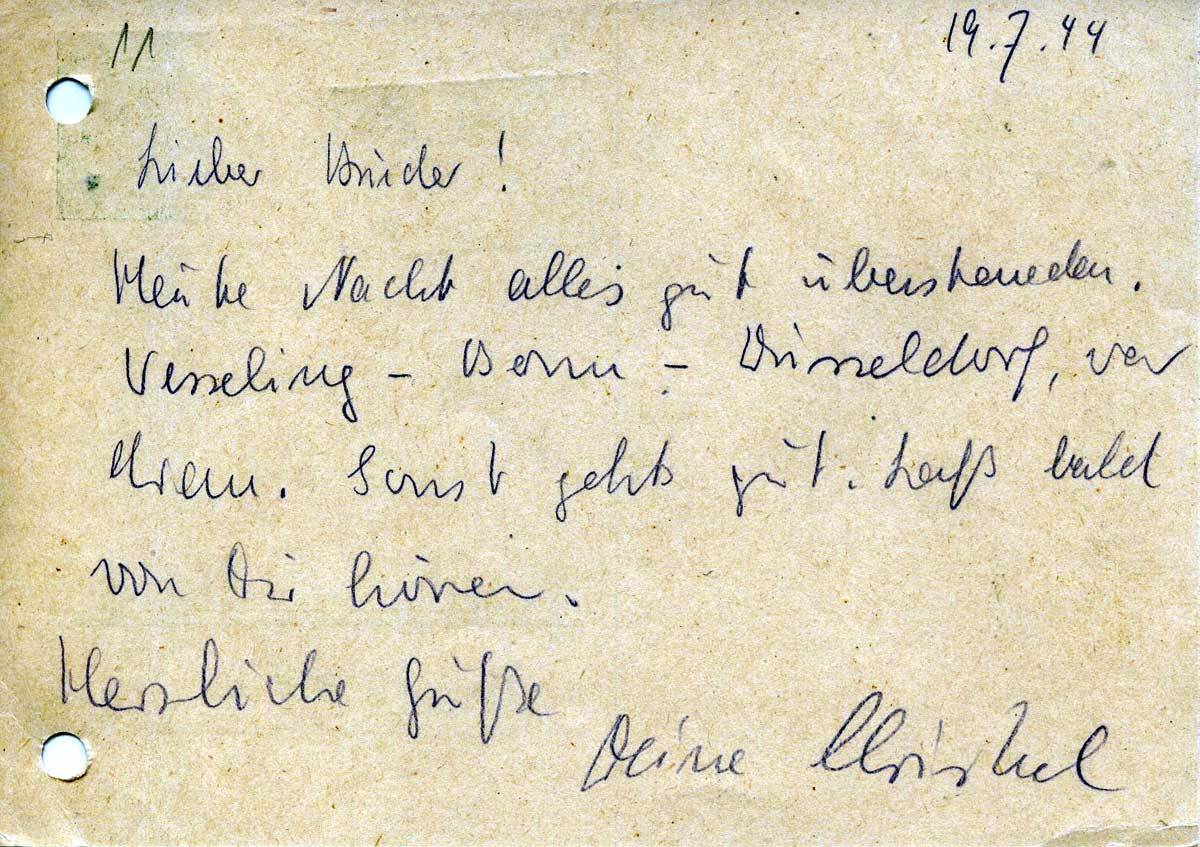 11
19.7.44
Lieber Bruder!
Heute Nacht alles gut überstanden.
Wesseling - Bonn - Düsseldorf, war
dran. Sonst gehts gut. Laß bald
von Dir hören.
Herzliche Grüße
Deine Christel